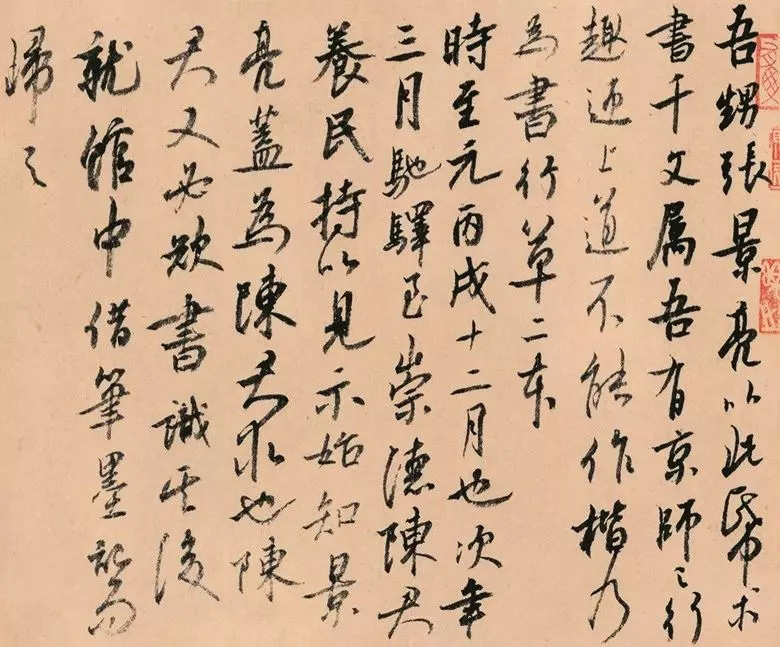 吾甥張景亮以此帋求
書千文属吾有京師之行
趣迫上道不能作楷乃
為書行草二本
時至元丙戌十二月也次年
三月馳驛至崇德陳君
養民持以見示始知景
亮蓋為陳君求也陳
君又必欲書識其後
就館中借筆墨記而
歸之